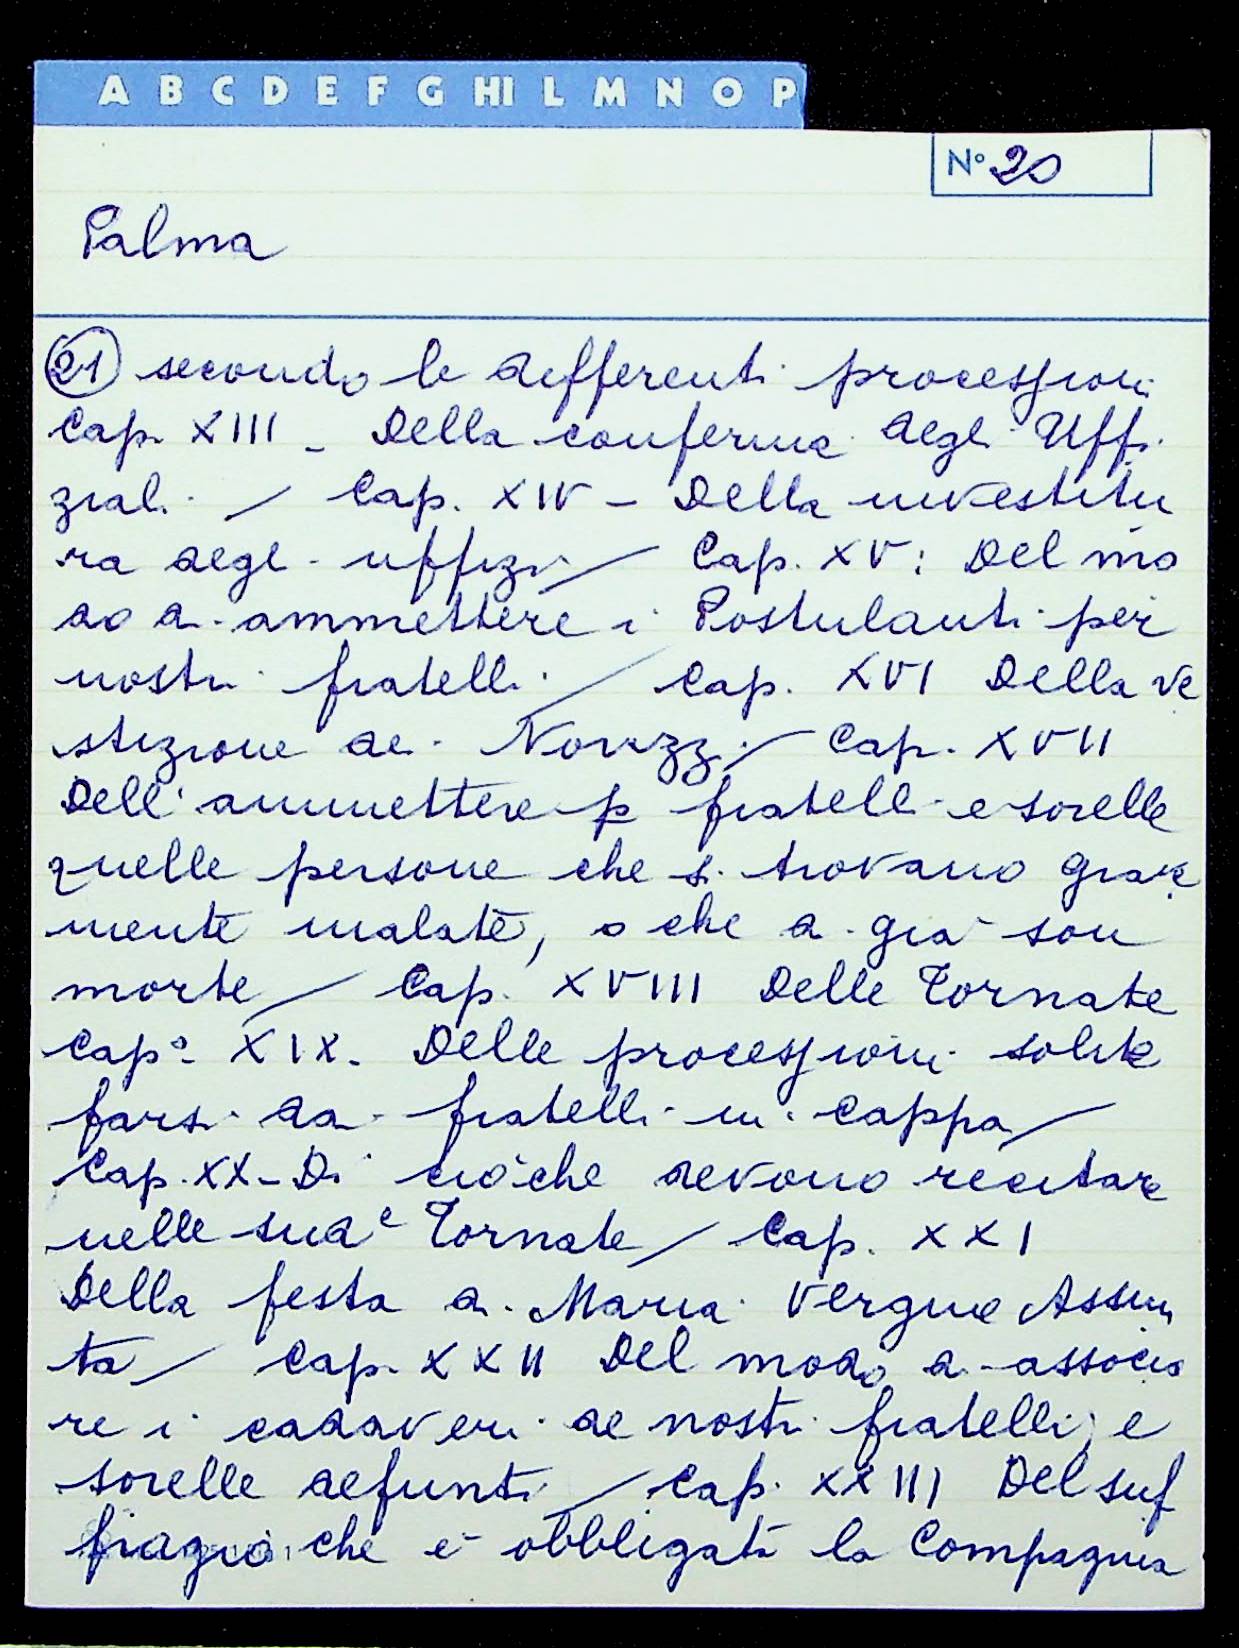 A B C D E F G HI L M N O P
N° 20
Palma
21 secondo le differenti processioni
Cap. XIII - Della conferma degl' Uffi
ziali / Cap. XIV - Della investitu
ra degl' uffizi / Cap. XV: Del mo
do di ammettere i Postulanti per
nostri fratelli / Cap. XVI Della ve
stizione de' Novizzi / Cap. XVII
Dell' ammettere p fratelli e sorelle
quelle persone che si trovano grave
mente malate, o che di già son
morte / Cap. XVIII Delle Tornate
Cap° XIX - Delle processioni solite
farsi da fratelli in cappa /
Cap. XX - Di ciò che devono recitare
nelle Tornate / Cap. XXI
Della festa di Maria Vergine Assun
ta / Cap. XXII Del modo di associa
re i cadaveri de nostri fratelli, e
sorelle defunti / Cap. XXIII Del suf
fragio che è obbligata la Compagnia